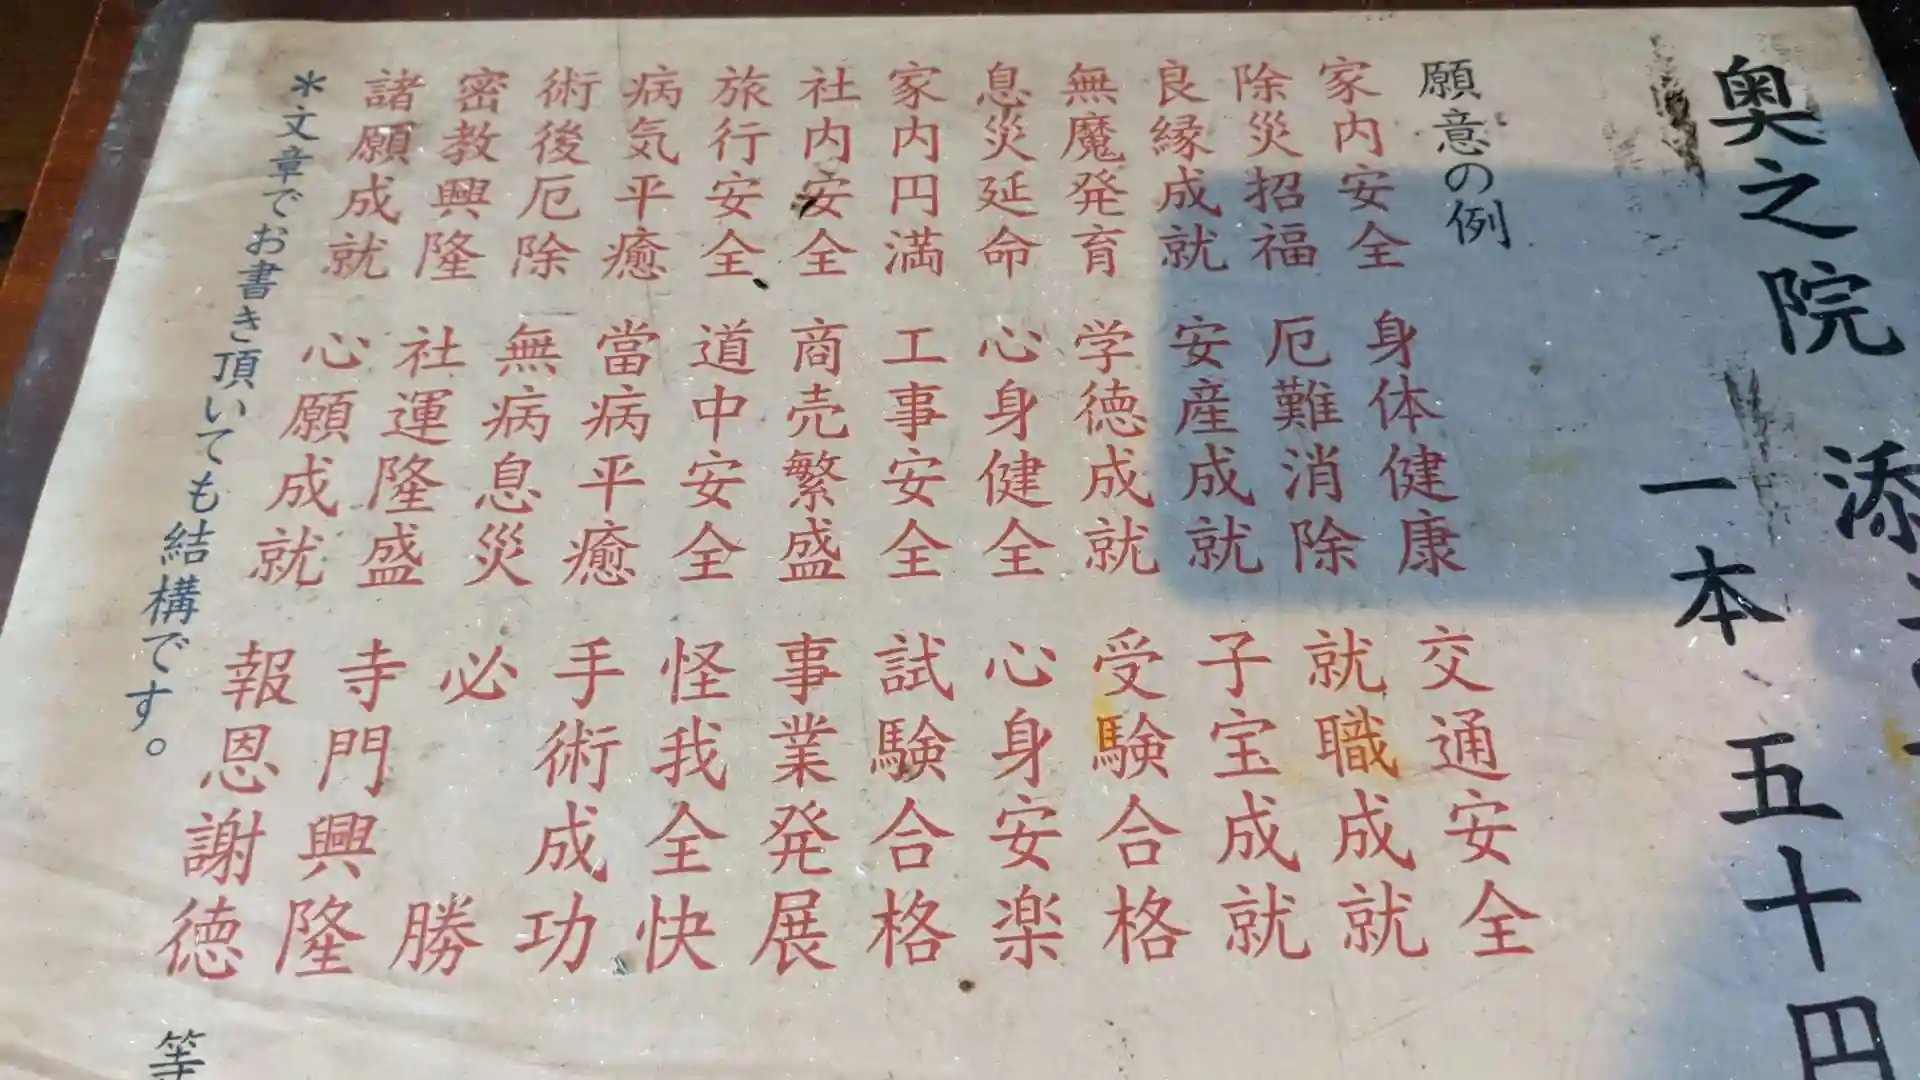 奥之院
添
一本 五十円
願意の例
家内安全 身体健康 交通安全
除災招福 厄難消除 就職成就
良縁成就 安産成就 子宝成就
無魔発育 学徳成就 受験合格
息災延命 心身健全 心身安楽
家内円満 工事安全 試験合格
社内安全 商売繁盛 事業発展
旅行安全 道中安全 怪我全快
病気平癒 當病平癒 手術成功
術後厄除 無病息災 必勝
密教興隆 社運隆盛 寺門興隆
諸願成就 心願成就 報恩謝徳
等
＊文章でお書き頂いても結構です。